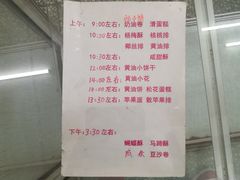 上午: 9:00左右: 奶油卷 清蛋糕
10:30左右: 杨梅酥 核桃排
椰丝排 黄油排
10:30左右: 咸甜酥
12:00左右: 黄油小饼干
14:00左右: 黄油小花
左右: 黄油饼 松花蛋糕
13:30左右: 苹果派 散苹果排
下午: 3:30左右:
蝴蝶酥 马蹄酥
豆沙卷